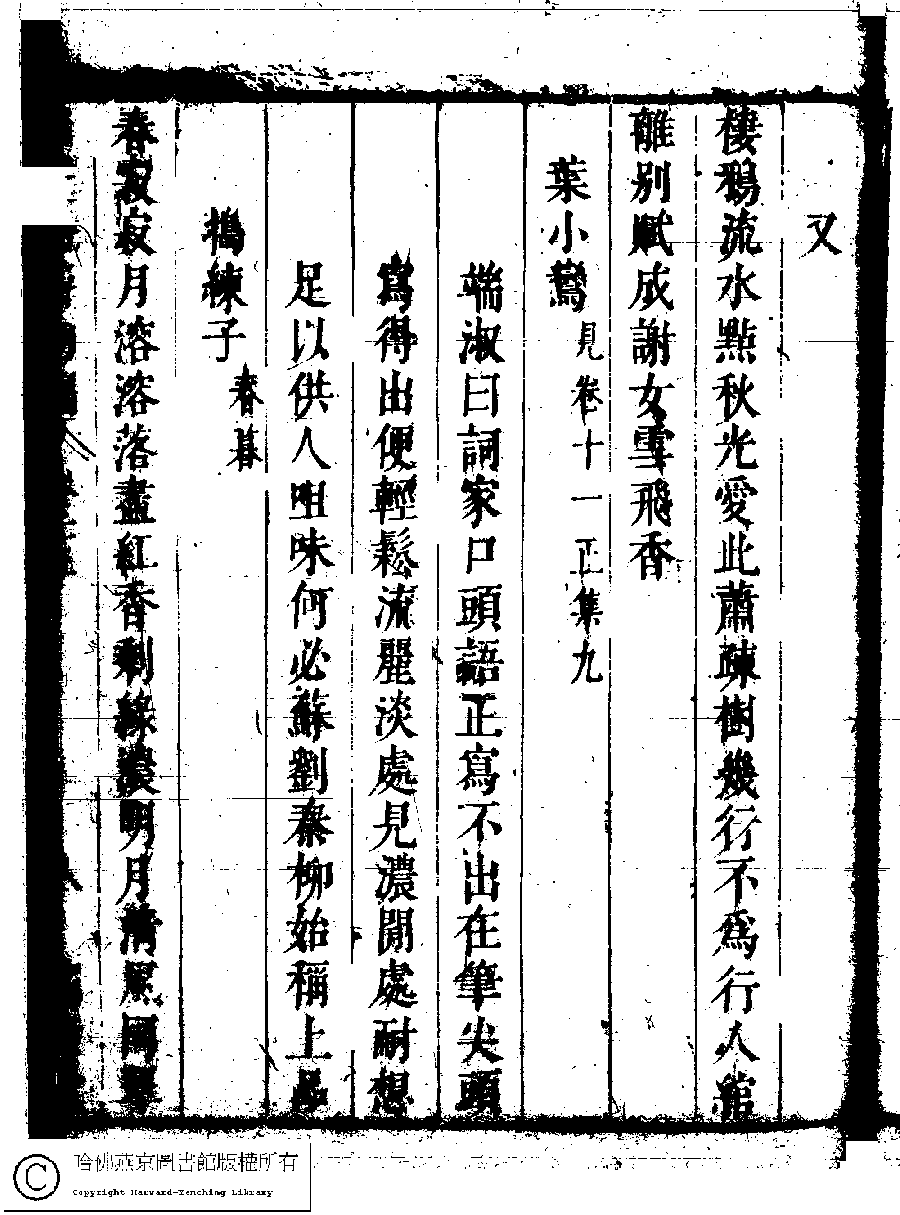 又
棲鵶流水點秋光愛此蕭疎樹幾行不爲行人綰
離别賦成謝女雪飛香
葉小鸞 見卷十一正集九
端淑曰詞家口頭語正寫不出在筆尖頭
寫得出便輕鬆流麗淡處見濃閒處耐想
足以供人咀味何必蘇劉秦柳始稱上品
搗練子 春暮
春寂寂月溶溶落盡紅香剩綠濃明月清風
哈佛燕京圖書館版權所有
Copyright Harvard-Yenching Library